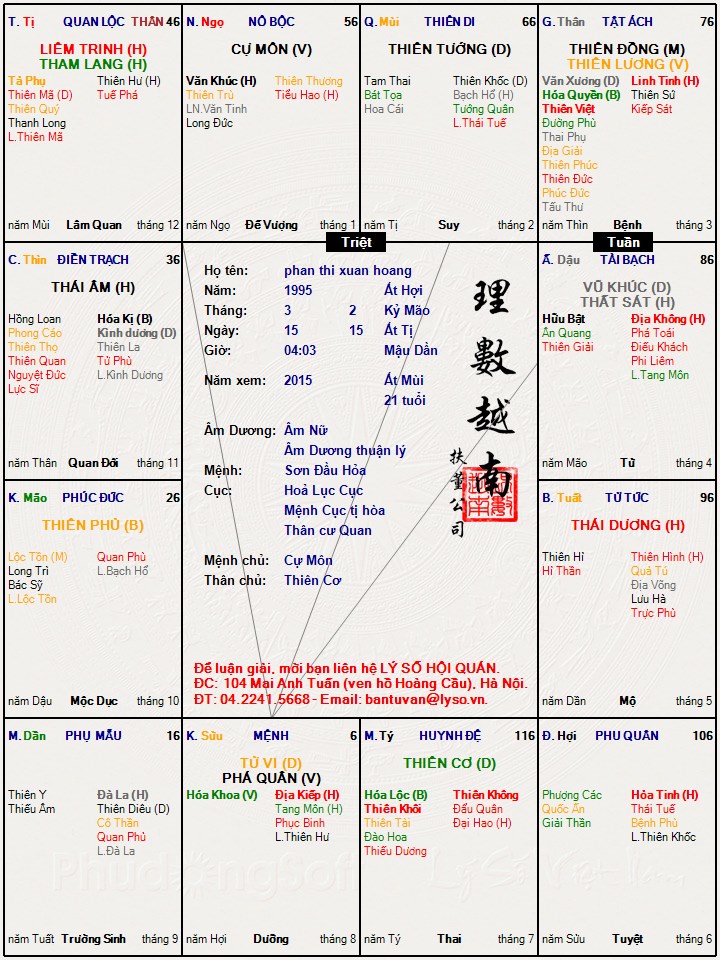 T. Tị QUAN LỘC THÂN 46
LIÊM TRINH (H)
THAM LANG (H)
Tả Phụ
Thiên Mã (D)
Thiên Quý
Thanh Long
L.Thiên Mã
Thiên Hư (H)
Tuế Phá
năm Mùi Lâm Quan tháng 12
N. Ngọ NÔ BỘC 56
CỰ MÔN (V)
Văn Khúc (H)
Thiên Trù
LN.Văn Tinh
Long Đức
Thiên Thương
Tiểu Hao (H)
năm Ngọ Đế Vượng tháng 1
Q. Mùi THIÊN DI 66
THIÊN TƯỚNG (D)
Tam Thai
Bát Tọa
Hoa Cái
Thiên Khốc (D)
Bạch Hổ (H)
Tướng Quân
L.Thái Tuế
năm Tị Suy tháng 2
G. Thân TẬT ÁCH 76
THIÊN ĐỒNG (M)
THIÊN LƯƠNG (V)
Văn Xương (D)
Hóa Quyền (B)
Thiên Việt
Đường Phù
Thai Phụ
Địa Giải
Thiên Phúc
Thiên Đức
Phúc Đức
Tấu Thư
Linh Tinh (H)
Thiên Sứ
Kiếp Sát
năm Thìn Bệnh tháng 3
Triệt
Tuần
C. Thìn ĐIỀN TRẠCH 36
THÁI ÂM (H)
Hồng Loan
Phong Cáo
Thiên Thọ
Thiên Quan
Nguyệt Đức
Lực Sĩ
Hóa Kị (B)
Kình dương (D)
Thiên La
Tử Phù
L.Kình Dương
năm Thân Quan Đới tháng 11
Họ tên: phan thi xuan hoang
Năm: 1995 Ất Hợi
Tháng: 3 2 Kỷ Mão
Ngày: 15 15 Ất Tị
Giờ: 04:03 Mậu Dần
Năm xem: 2015 Ất Mùi
21 tuổi
Âm Dương: Âm Nữ
Âm Dương thuận lý
Mệnh: Sơn Đầu Hỏa
Cục: Hoả Lục Cục
Mệnh Cục tị hòa
Thân cư Quan
Mệnh chủ: Cự Môn
Thân chủ: Thiên Cơ
理數越南
扶董公司
Để luận giải, mời bạn liên hệ LÝ SỐ HỘI QUÁN.
ĐC: 104 Mai Anh Tuấn (ven hồ Hoàng Cầu), Hà Nội.
ĐT: 04.2241.5668 - Email: bantuvan@lyso.vn.
Ấ. Dậu TÀI BẠCH 86
VŨ KHÚC (D)
THẤT SÁT (H)
Hữu Bật
Ân Quang
Thiên Giải
Địa Không (H)
Phá Toái
Điếu Khách
Phi Liêm
L.Tang Môn
năm Mão Tử tháng 4
K. Mão PHÚC ĐỨC 26
THIÊN PHỦ (B)
Lộc Tồn (M)
Long Trì
Bác Sỹ
L.Lộc Tồn
Quan Phù
L.Bạch Hổ
năm Dậu Mộc Dục tháng 10
B. Tuất TỬ TỨC 96
THÁI DƯƠNG (H)
Thiên Hỉ
Hỉ Thần
Thiên Hình (H)
Quả Tú
Địa Võng
Lưu Hà
Trực Phù
năm Dần Mộ tháng 5
M. Dần PHỤ MẪU 16
Thiên Y
Thiếu Âm
Đà La (H)
Thiên Diêu (D)
Cô Thần
Quan Phủ
L.Đà La
năm Tuất Trường Sinh tháng 9
K. Sửu MỆNH 6
TỬ VI (D)
PHÁ QUÂN (V)
Hóa Khoa (V)
Địa Kiếp (H)
Tang Môn (H)
Phục Binh
L.Thiên Hư
năm Hợi Dưỡng tháng 8
M. Tý HUYNH ĐỆ 116
THIÊN CƠ (D)
Hóa Lộc (B)
Thiên Khôi
Thiên Tài
Đào Hoa
Thiếu Dương
Thiên Không
Đẩu Quân
Đại Hao (H)
năm Tý Thai tháng 7
Đ. Hợi PHU QUÂN 106
Phượng Các
Quốc Ấn
Giải Thần
Hỏa Tinh (H)
Thái Tuế
Bệnh Phù
L.Thiên Khốc
năm Sửu Tuyệt tháng 6
Phudongsoft
Lý Số Việt Nam